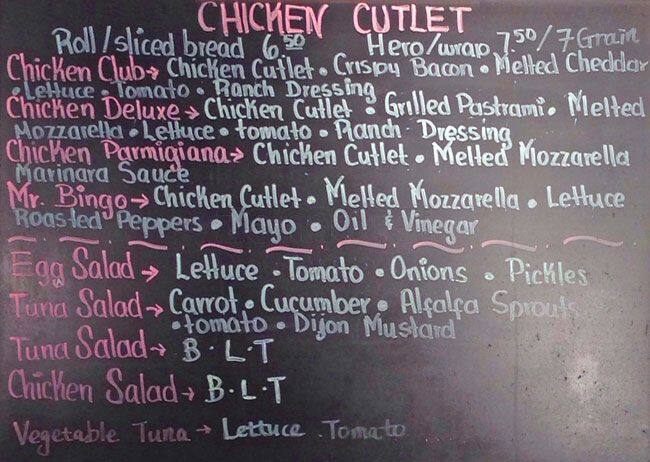 CHICKEN CUTLET
Roll/sliced bread 6.50 Hero/wrap 7.50/7 Grain
Chicken Club→ Chicken Cutlet • Crispy Bacon • Melted Cheddar
• Lettuce • Tomato • Ranch Dressing
Chicken Deluxe→ Chicken Cutlet • Grilled Pastrami • Melted
Mozzarella • Lettuce • tomato • Ranch • Dressing
Chicken Parmigiana→ Chicken Cutlet • Melted Mozzarella
Marinara Sauce
Mr. Bingo→ Chicken Cutlet • Melted Mozzarella • Lettuce
Roasted Peppers • Mayo • Oil & Vinegar
Egg Salad → Lettuce • Tomato • Onions • Pickles
Tuna Salad→ Carrot • Cucumber • Alfalfa Sprouts
• tomato • Dijon Mustard
Tuna Salad→ B•L•T
Chicken Salad→ B•L•T
Vegetable Tuna → Lettuce . Tomato